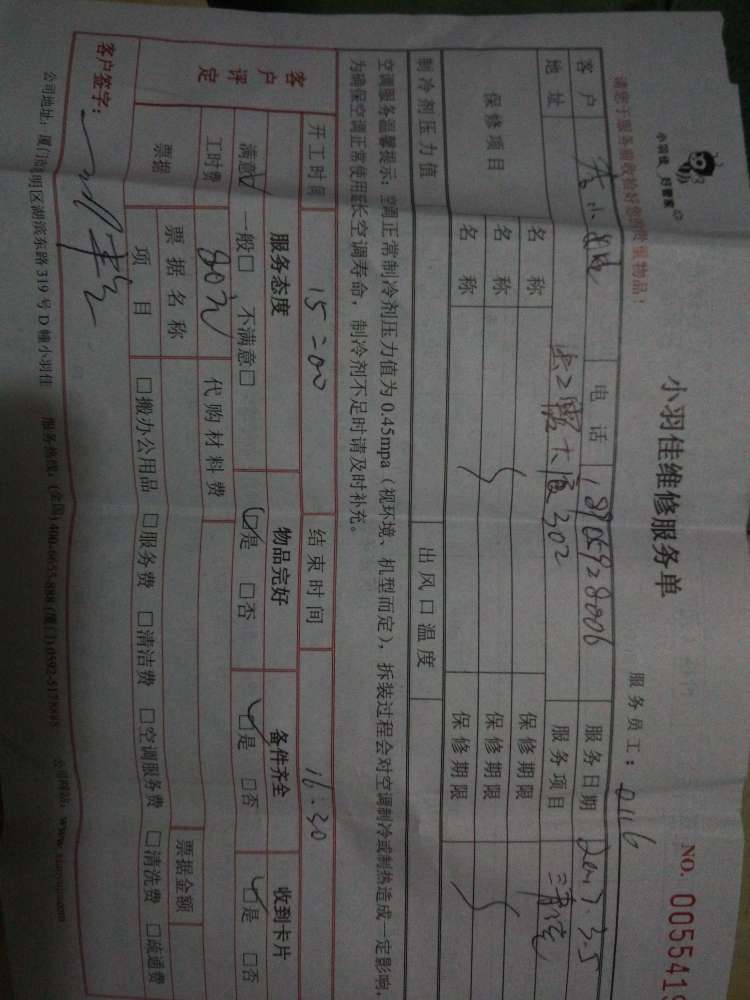 小羽佳 好管家
小羽佳维修服务单
NO. 005541
服务员工: 0116
请您于服务前收拾好您的贵重物品!
客户 电话 18905928006 服务日期 2017.3.5
地址 大厦302 服务项目
保修项目 名称 保修期限
名称 保修期限
名称 保修期限
制冷剂压力值 出风口温度
空调服务温馨提示:空调正常制冷剂压力值为0.45mpa(视环境、机型而定),拆装过程会对空调制冷或制热造成一定影响,
为确保空调正常使用延长空调寿命,制冷剂不足时请及时补充。
开工时间 15:00 结束时间 16:30
客户评定 服务态度 物品完好 备件齐全 收到卡片
满意☑ 一般□ 不满意□ ☑是 □否 ☑是 □否 ☑是 □否
工时费 80元 代购材料费
票据 票据名称 票据金额
项目 □搬办公用品 □服务费 □清洁费 □空调服务费 □清洗费 □疏通费
客户签字:
公司地址:厦门市思明区湖滨东路319号D幢小羽佳 服务热线:(全国)400-6655-888 (厦门)0592-5178885 公司网站: